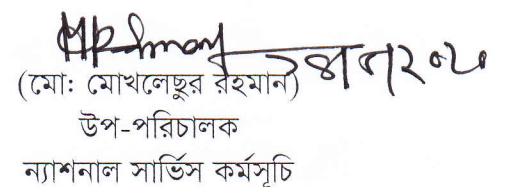 (মো: মোখলেছুর রহমান)
উপ-পরিচালক
ন্যাশনাল সার্ভিস কর্মসূচি